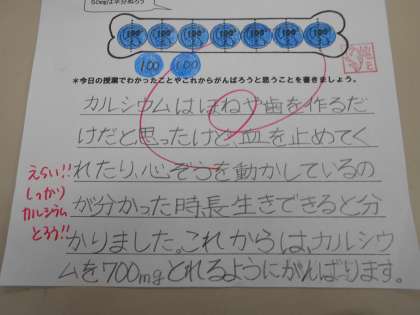 50mgは半分ぬろう
100 100 100 100 100 100 100
100 100
*今日の授業でわかったことやこれからがんばろうと思うことを書きましょう。
カルシウムはほねや歯を作るだ
けだと思ったけど、血を止めてく
れたり、心ぞうを動かしているの
が分かった時、長生きできると分
かりました。これからは、カルシウ
ムを700mgとれるようにがんばります。
えらい!!
しっかり
カルシウム
とろう!!